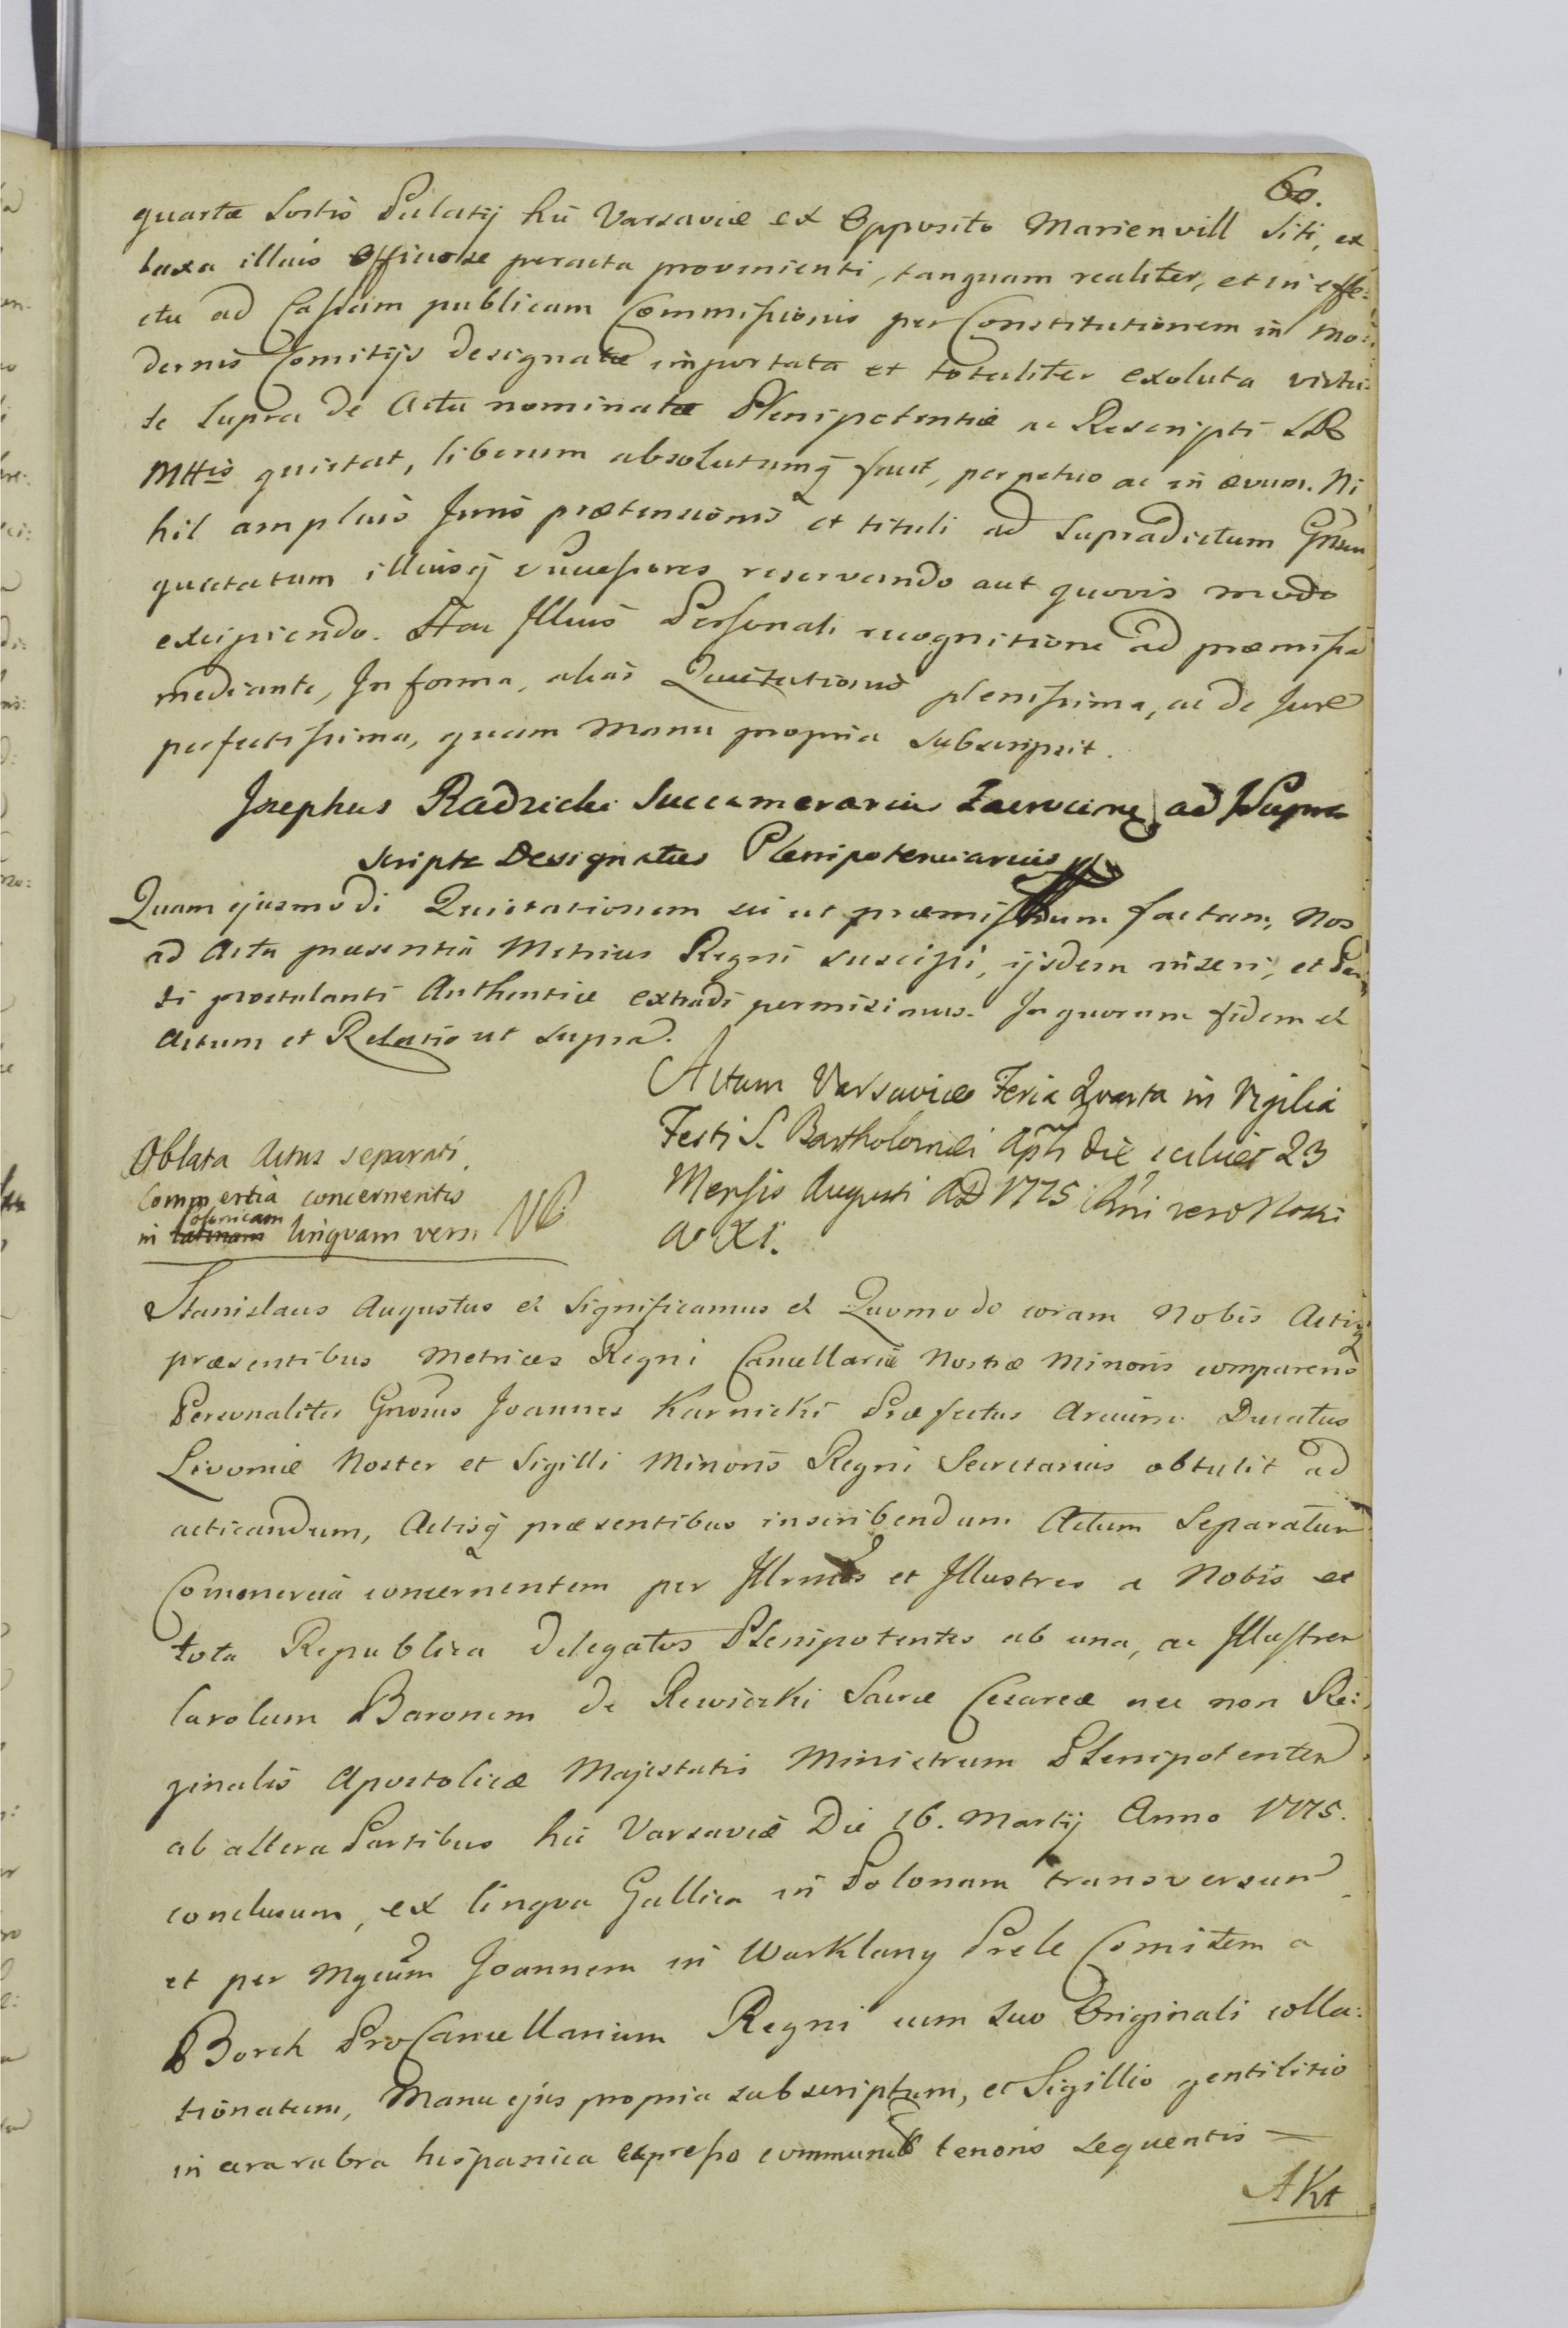 60.
quartæ Sortis Palatij hic Varsaviæ ex Opposito Marienvill Siti, ex
taxa illius Officiose peracta provenienti, tanquam realiter, et in effe:
ctu ad Cassam publicam Commissionis per Constitutionem in mo:
dernis Comitijs designatæ importata et totaliter exoluta virtu:
te Supra de Actu nominatæ Plenipotentiæ ac Rescripti SR
Mttis quietat, liberum absolutumq facit, perpetuo ac in ævum. Ni
hil amplius Juris prætensionis et tituli ad Supradictum Gnsum
quietatum illiusq successores reservando aut quovis modo
excipiendo. Hac Illius Personali recognitione ad præmissa
mediante, In forma, alias Quietationis plenissima, ac de Jure
perfectissima, quam Manu propria subscripsit.
Josephus Radzicki Succamerarius Zacrocimę ad Supra
scripta Designatus Plenipotenciarius
Quam ejusmodi Quietationem sic ut præmissum factam, Nos
ad Acta præsentia Metrices Regni suscipi, ijsdem inseri, et Par
ti postulanti Authentice extradi permisimus. In quorum fidem et
Actum et Relatio ut supra.
Actum Varsaviæ Feria Quarta in Vigilia
Festi S. Bartholomæi Apli die scilicet 23
Mensis Augusti AD 1775 Rni vero Nostri
Ao XI.
Oblata Actus separati
Commertia concernentis
in latinam olonicam lingvam versi NB
Stanislaus Augustus et Significamus et Quomodo coram Nobis Actisq
præsentibus Metrices Regni Cancellariæ Nostræ Minoris comparens
Personaliter Gnosus Joannes Karnicki Præfectus Arcium Ducatus
Livoniæ Noster et Sigilli Minoris Regni Secretarius obtulit ad
acticandum, Actisq præsentibus inscribendum Actum Separatum
Commercia concernentem per Illrmos et Illustres a Nobis et
tota Republica Delegatos Plenipotentes ab una, ac Illustrem
Carolum Baronem de Rewiczki Sacræ Cesareæ nec non Re:
ginalis Apostolicæ Majestatis Ministrum Plenipotentem
ab altera Partibus hic Varsaviæ Die 16. Martij Anno 1775.
conclusum, ex lingva Gallica in Polonam transversum
et per Mgcum Joannem in Warklany Prele Comitem a
Borch ProCancellarium Regni cum Suo Originali colla:
tionatum, Manu ejus propria subscriptum, et Sigillo gentilitio
in cera rubra hispanica expresso communitum tenoris sequentis =
AKt